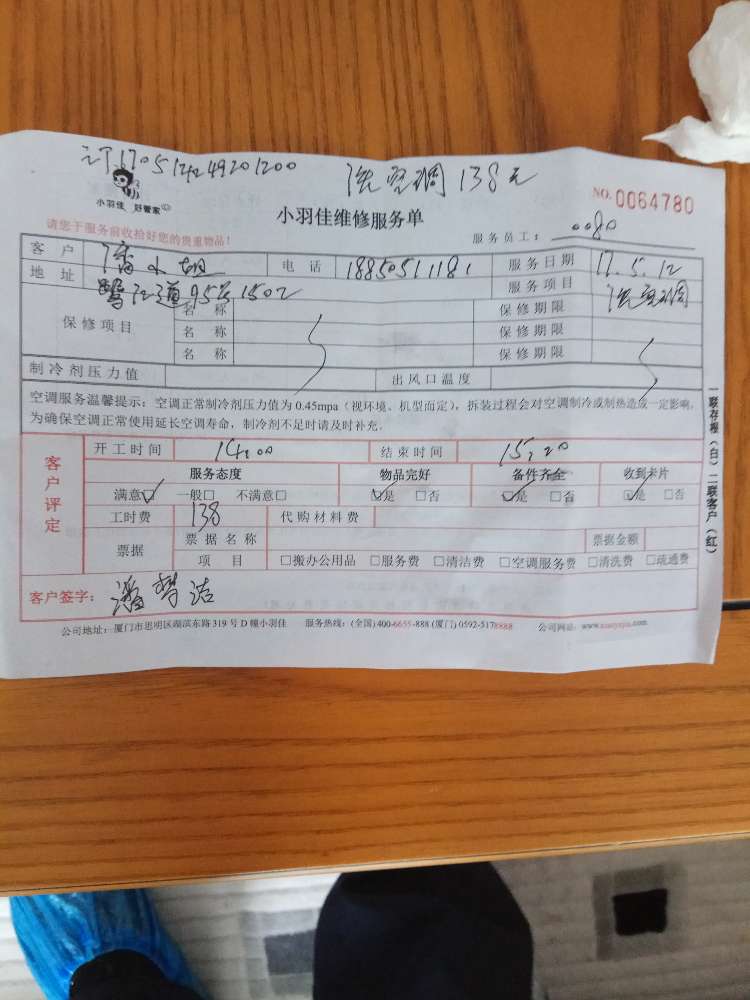 订17051249201200 洗空调138元
小羽佳 好管家
小羽佳维修服务单
NO.0064780
请您于服务前收拾好您的贵重物品!
服务员工: 0080
客户 潘小姐 电话 18850511181 服务日期 17.5.12
地址 鹭江道95号1502 服务项目 洗空调
保修项目 名称 保修期限
名称 保修期限
名称 保修期限
制冷剂压力值 出风口温度
空调服务温馨提示:空调正常制冷剂压力值为0.45mpa(视环境、机型而定),拆装过程会对空调制冷或制热造成一定影响,
为确保空调正常使用延长空调寿命,制冷剂不足时请及时补充。
客户评定
开工时间 14:00 结束时间 15:20
服务态度 物品完好 备件齐全 收到卡片
满意☑ 一般□ 不满意□ ☑是 □否 ☑是 □否 ☑是 □否
工时费 138 代购材料费
票据 票据名称 票据金额
项目 □搬办公用品 □服务费 □清洁费 □空调服务费 □清洗费 □疏通费
客户签字: 潘梦洁
公司地址:厦门市思明区湖滨东路319号D幢小羽佳 服务热线:(全国)400-6655-888 (厦门)0592-5178888 公司网站:www.xiaoyujia.com
一联存根(白)二联客户(红)